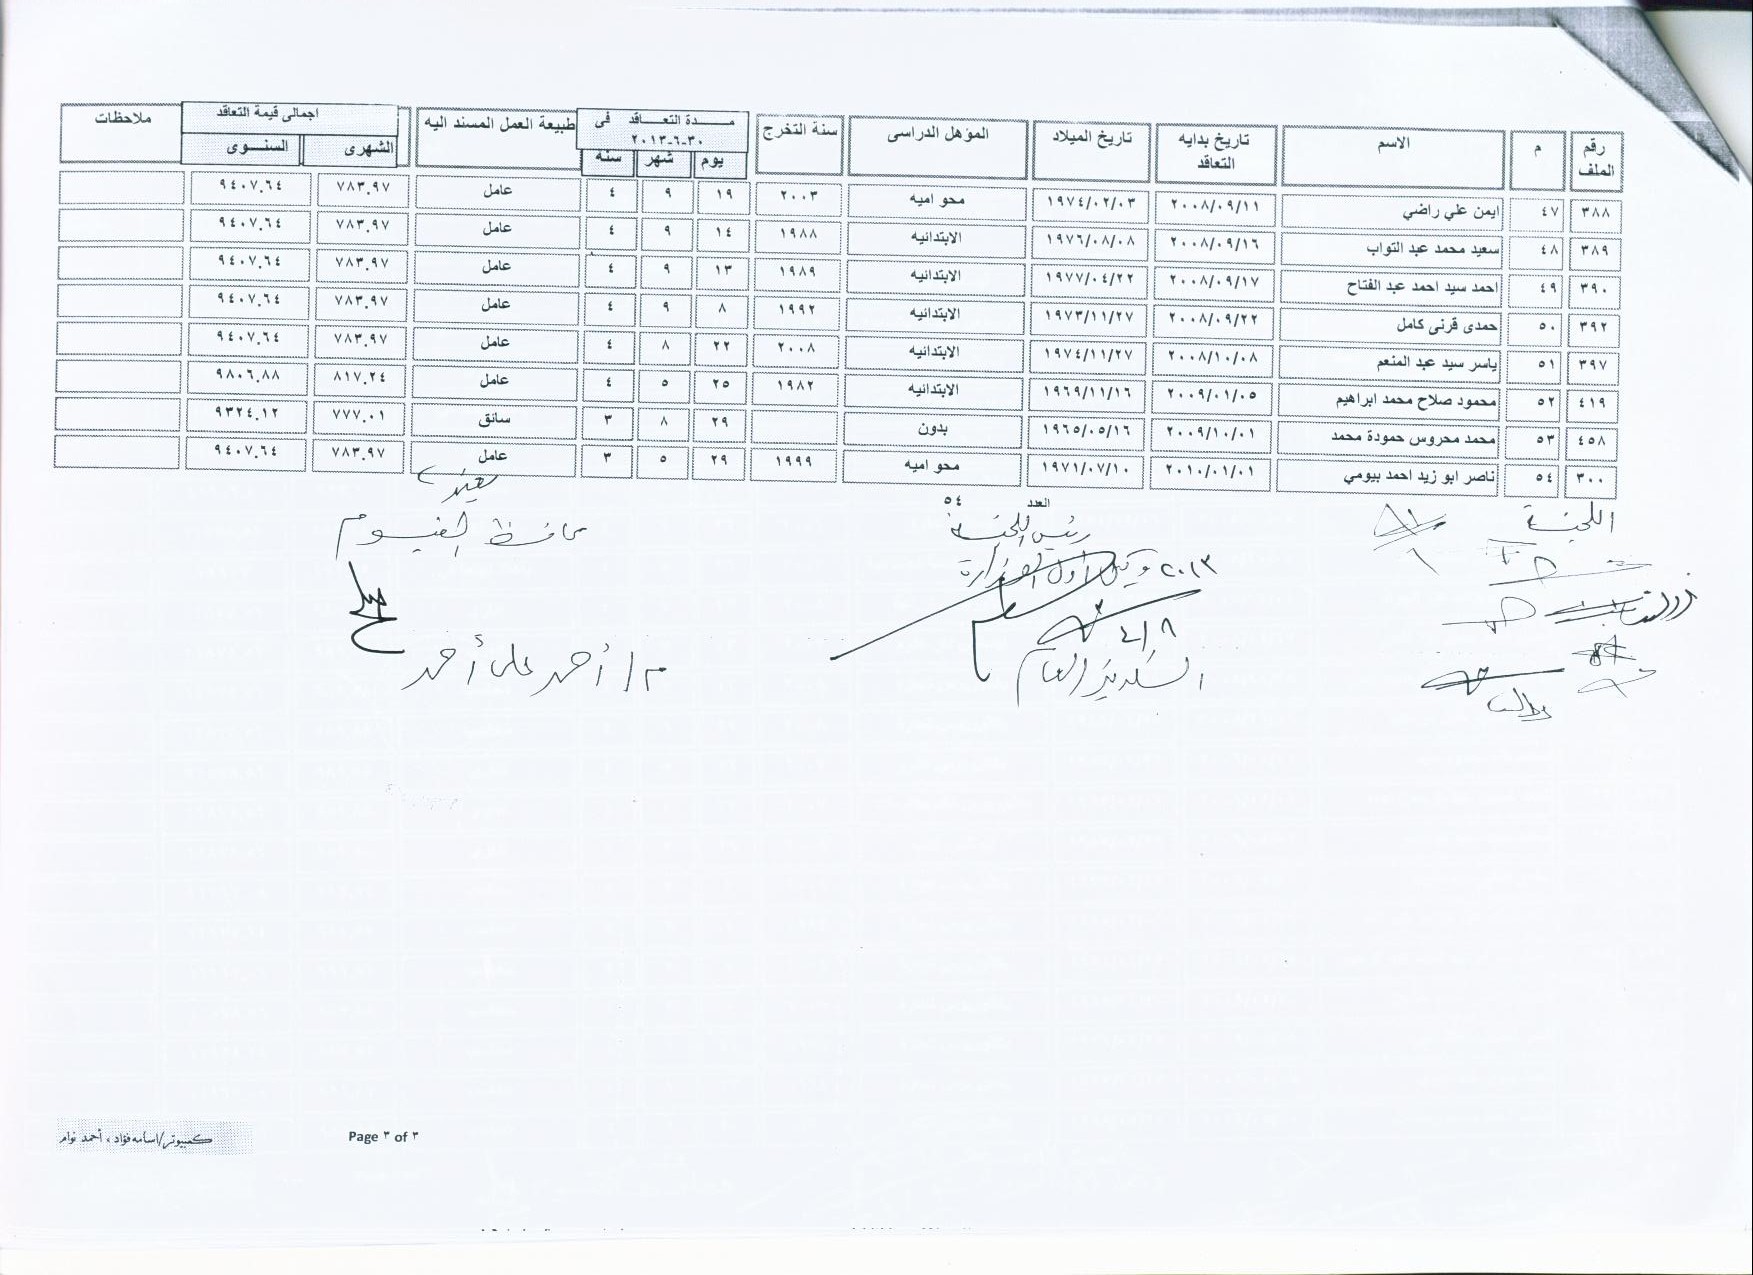 رقم الملف م الاسم تاريخ بدايه التعاقد تاريخ الميلاد المؤهل الدراسى سنة التخرج مـــدة التعـــاقد فى ٣٠-٦-٢٠١٣ يوم شهر سنه طبيعة العمل المسند اليه اجمالى قيمة التعاقد الشهرى السنـــوى ملاحظات
٣٨٨ ٤٧ ايمن علي راضي ٢٠٠٨/٠٩/١١ ١٩٧٤/٠٢/٠٣ محو اميه ٢٠٠٣ ١٩ ٩ ٤ عامل ٧٨٣.٩٧ ٩٤٠٧.٦٤
٣٨٩ ٤٨ سعيد محمد عبد التواب ٢٠٠٨/٠٩/١٦ ١٩٧٦/٠٨/٠٨ الابتدائيه ١٩٨٨ ١٤ ٩ ٤ عامل ٧٨٣.٩٧ ٩٤٠٧.٦٤
٣٩٠ ٤٩ احمد سيد احمد عبد الفتاح ٢٠٠٨/٠٩/١٧ ١٩٧٧/٠٤/٢٢ الابتدائيه ١٩٨٩ ١٣ ٩ ٤ عامل ٧٨٣.٩٧ ٩٤٠٧.٦٤
٣٩٢ ٥٠ حمدى قرنى كامل ٢٠٠٨/٠٩/٢٢ ١٩٧٣/١١/٢٧ الابتدائيه ١٩٩٢ ٨ ٩ ٤ عامل ٧٨٣.٩٧ ٩٤٠٧.٦٤
٣٩٧ ٥١ ياسر سيد عبد المنعم ٢٠٠٨/١٠/٠٨ ١٩٧٤/١١/٢٧ الابتدائيه ٢٠٠٨ ٢٢ ٨ ٤ عامل ٧٨٣.٩٧ ٩٤٠٧.٦٤
٤١٩ ٥٢ محمود صلاح محمد ابراهيم ٢٠٠٩/٠١/٠٥ ١٩٦٩/١١/١٦ الابتدائيه ١٩٨٢ ٢٥ ٥ ٤ عامل ٨١٧.٢٤ ٩٨٠٦.٨٨
٤٥٨ ٥٣ محمد محروس حمودة محمد ٢٠٠٩/١٠/٠١ ١٩٦٥/٠٥/١٦ بدون ٢٩ ٨ ٣ سائق ٧٧٧.٠١ ٩٣٢٤.١٢
٣٠٠ ٥٤ ناصر ابو زيد احمد بيومي ٢٠١٠/٠١/٠١ ١٩٧١/٠٧/١٠ محو اميه ١٩٩٩ ٢٩ ٥ ٣ عامل ٧٨٣.٩٧ ٩٤٠٧.٦٤
العدد ٥٤
اللجنة
رئيس اللجنة
يعتمد
محافظ الفيوم
وكيل أول الوزارة
السكرتير العام
م/ أحمد على أحمد
Page ٣ of ٣
كمبيوتر/اسامه فؤاد ، أحمد نوام